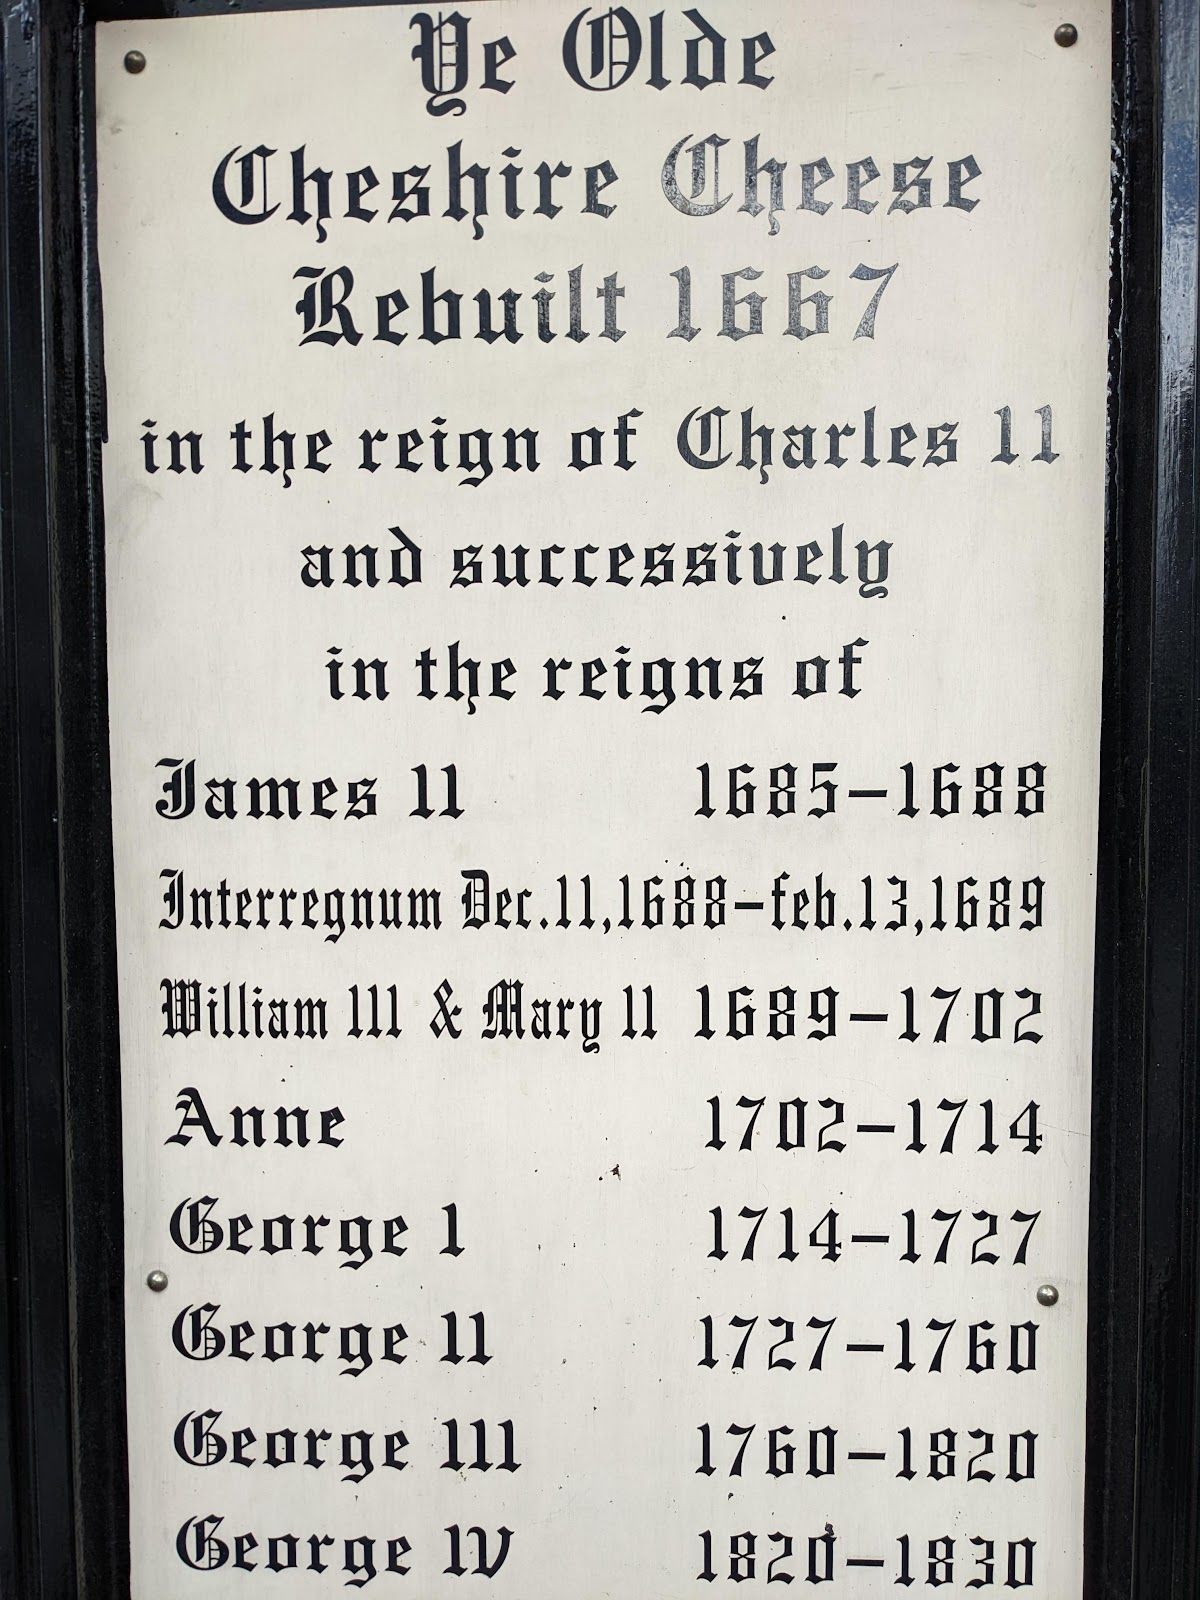 Ye Olde
Cheshire Cheese
Rebuilt 1667
in the reign of Charles 11
and successively
in the reigns of
James 11 1685-1688
Interregnum Dec.11,1688-feb.13,1689
William 111 & Mary 11 1689-1702
Anne 1702-1714
George 1 1714-1727
George 11 1727-1760
George 111 1760-1820
George 1V 1820-1830